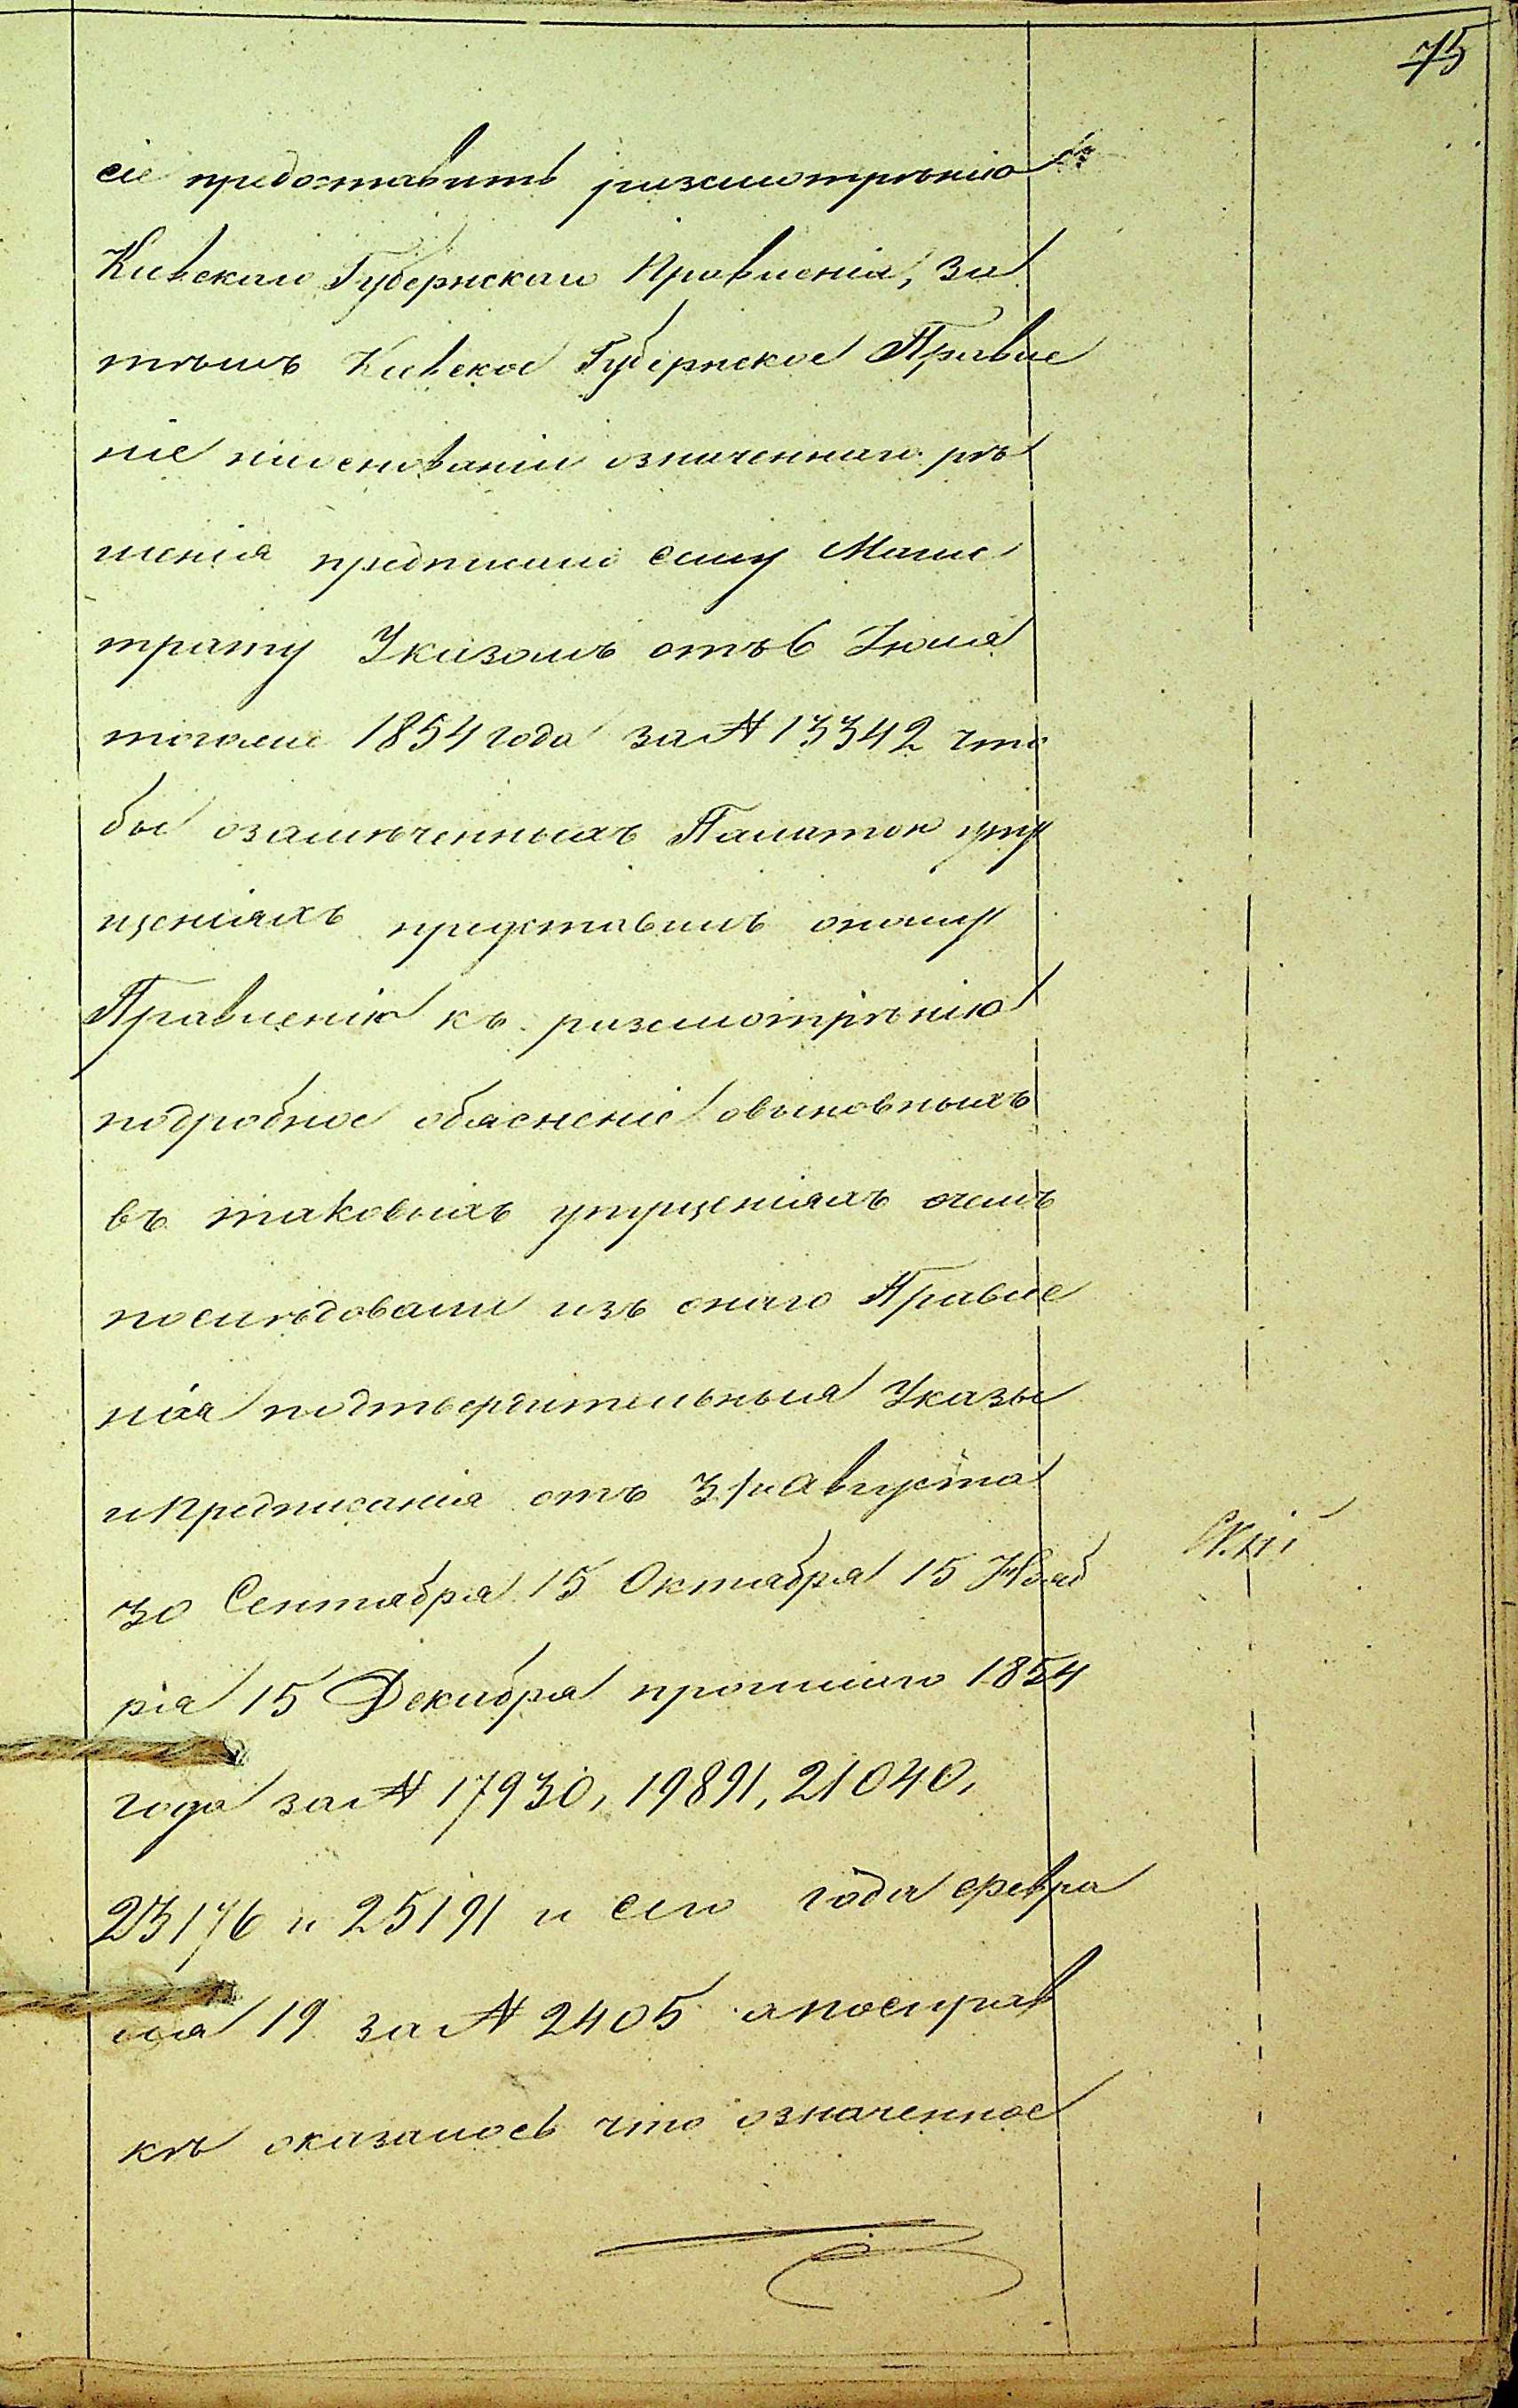 75
сіе предоставить разсмотрѣнію
Кіевскаго Губернскаго Правленія, За
тѣмъ Кіевское Губернское Правле
ніе наоснованіи означеннаго рѣ
шенія предписало сему Магис
трату Указомъ отъ 6 Іюля
тогоже 1854 года за № 13342 что
бы озамѣченныхъ Палатою упу
щеніяхъ представилъ оному
Правленію къ разсмотрѣнію
подробное обясненіе овиновныхъ
въ таковыхъ упущеніяхъ очемъ
послѣдовали изъ онаго Правле
нія подтвердительныя Указы
иПредписанія отъ 31го Августа
30 Сентября 15 Октября 15 Нояб
ря 15 Декабря прошлаго 1854
года за № 17930, 19891, 21040,
23176 и 25191 и сего года февра
ля 19 за № 2405 апосправ
кѣ оказалось что означенное